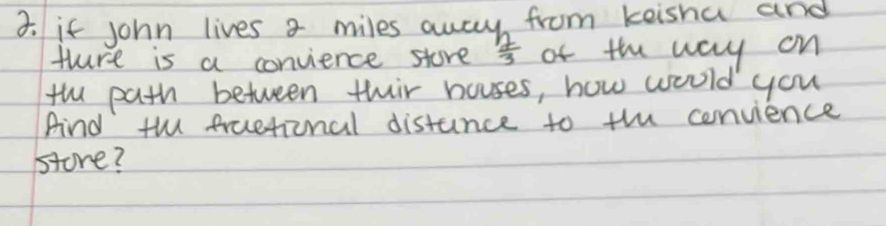 2. if John lives 2 miles away from keisha and
there is a convience store 2/3 of the way on
the path between their houses, how would you
find the fractional distance to the convience
store?